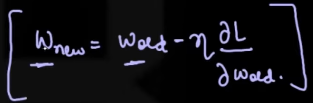 [ Wnew = Wold - η ∂L / ∂Wold. ]